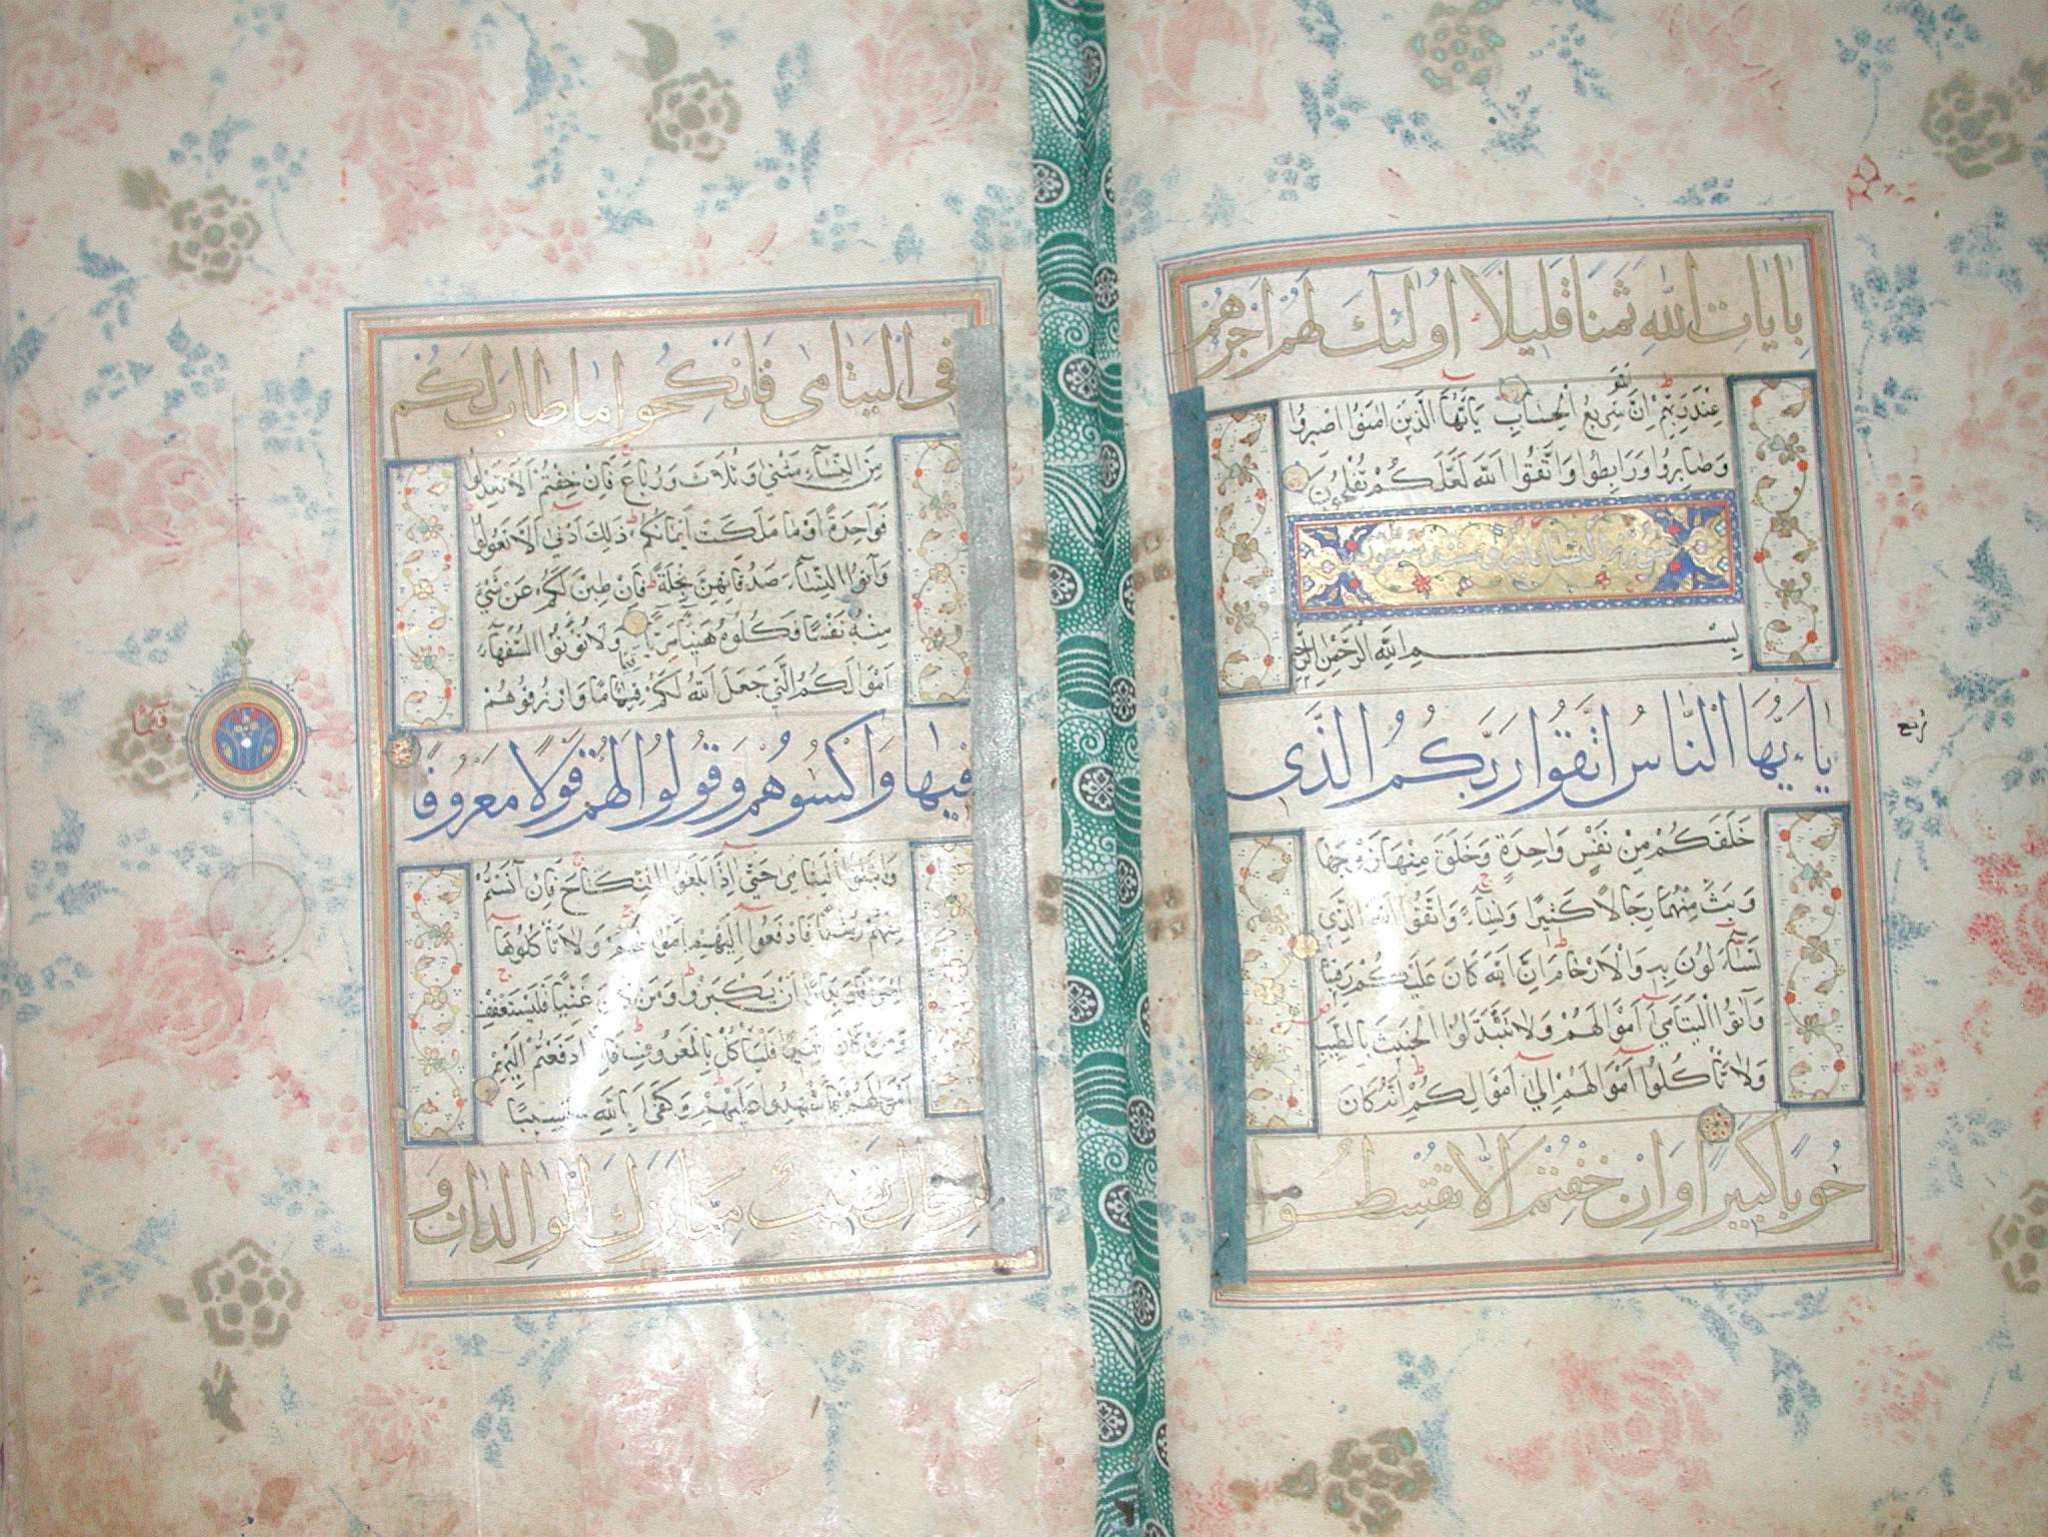 بِاٰيَاتِ اللّٰهِ ثَمَنًا قَلِيلًا اُولٰئِكَ لَهُمْ اَجْرُهُمْ
عِنْدَ رَبِّهِمْ اِنَّ اللّٰهَ سَرِيعُ الْحِسَابِ يَا اَيُّهَا الَّذِينَ اٰمَنُوا اصْبِرُوا
وَصَابِرُوا وَرَابِطُوا وَاتَّقُوا اللّٰهَ لَعَلَّكُمْ تُفْلِحُونَ
سورة النساء
بِسْمِ اللّٰهِ الرَّحْمٰنِ الرَّحِيمِ
يَاءَيُّهَا النَّاسُ اتَّقُوا رَبَّكُمُ الَّذِى
خَلَقَكُمْ مِنْ نَفْسٍ وَاحِدَةٍ وَخَلَقَ مِنْهَا زَوْجَهَا
وَبَثَّ مِنْهُمَا رِجَالًا كَثِيرًا وَنِسَآءً وَاتَّقُوا اللّٰهَ الَّذِي
تَسَآءَلُونَ بِهِ وَالْاَرْحَامَ اِنَّ اللّٰهَ كَانَ عَلَيْكُمْ رَقِيبًا
وَاٰتُوا الْيَتَامٰى اَمْوَالَهُمْ وَلَا تَتَبَدَّلُوا الْخَبِيثَ بِالطَّيِّبِ
وَلَا تَاْكُلُوا اَمْوَالَهُمْ اِلٰى اَمْوَالِكُمْ اِنَّهُ كَانَ
حُوبًا كَبِيرًا وَاِنْ خِفْتُمْ اَلَّا تُقْسِطُوا
ربع
فِى الْيَتَامٰى فَانْكِحُوا مَا طَابَ لَكُمْ
مِنَ النِّسَآءِ مَثْنٰى وَثُلَاثَ وَرُبَاعَ فَاِنْ خِفْتُمْ اَلَّا تَعْدِلُوا
فَوَاحِدَةً اَوْ مَا مَلَكَتْ اَيْمَانُكُمْ ذٰلِكَ اَدْنٰى اَلَّا تَعُولُوا
وَاٰتُوا النِّسَآءَ صَدُقَاتِهِنَّ نِحْلَةً فَاِنْ طِبْنَ لَكُمْ عَنْ شَيْءٍ
مِنْهُ نَفْسًا فَكُلُوهُ هَنِيئًا مَرِيئًا وَلَا تُؤْتُوا السُّفَهَآءَ
اَمْوَالَكُمُ الَّتِي جَعَلَ اللّٰهُ لَكُمْ قِيَامًا وَارْزُقُوهُمْ
فِيهَا وَاكْسُوهُمْ وَقُولُوا لَهُمْ قَوْلًا مَعْرُوفًا
وَابْتَلُوا الْيَتَامٰى حَتّٰى اِذَا بَلَغُوا النِّكَاحَ فَاِنْ اٰنَسْتُمْ
مِنْهُمْ رُشْدًا فَادْفَعُوا اِلَيْهِمْ اَمْوَالَهُمْ وَلَا تَاْكُلُوهَا
اِسْرَافًا وَبِدَارًا اَنْ يَكْبَرُوا وَمَنْ كَانَ غَنِيًّا فَلْيَسْتَعْفِفْ
وَمَنْ كَانَ فَقِيرًا فَلْيَاْكُلْ بِالْمَعْرُوفِ فَاِذَا دَفَعْتُمْ اِلَيْهِمْ
اَمْوَالَهُمْ فَاَشْهِدُوا عَلَيْهِمْ وَكَفٰى بِاللّٰهِ حَسِيبًا
لِلرِّجَالِ نَصِيبٌ مِمَّا تَرَكَ الْوَالِدَانِ وَ